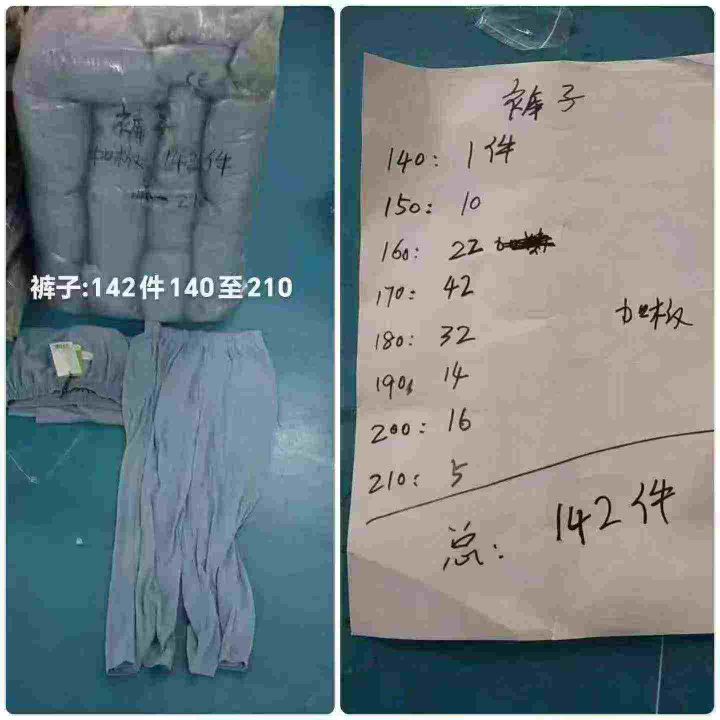 裤子
加板 142件
210
裤子:142件140至210
裤子
140: 1件
150: 10
160: 22 加
170: 42
180: 32
190: 14
200: 16
210: 5
加板
总: 142件